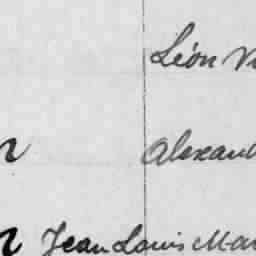 Léon
Alexan
Jean Louis Mar